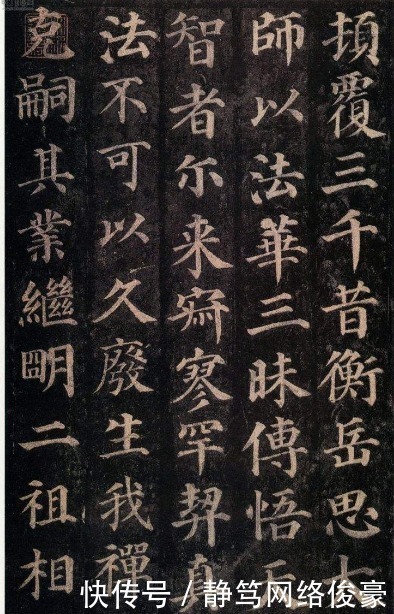 頂覆三千昔衡岳思大
師以法華三昧傳悟
智者尔来寂寥罕契真
法不可以久廢生我禪
克嗣其業繼明二祖相
快传号/静笃网络俊豪